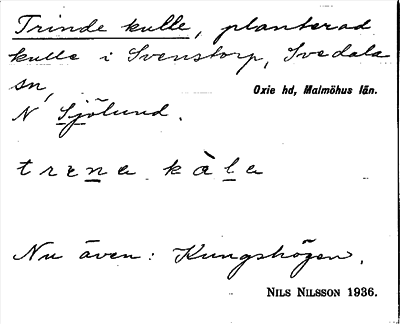 Trinde kulle, planterad
kulle i Svenstorp, Svedala
sn, Oxie hd, Malmöhus län.
N Sjölund.
trɛna kàla
Nu även: Kungshögen.
NILS NILSSON 1936.